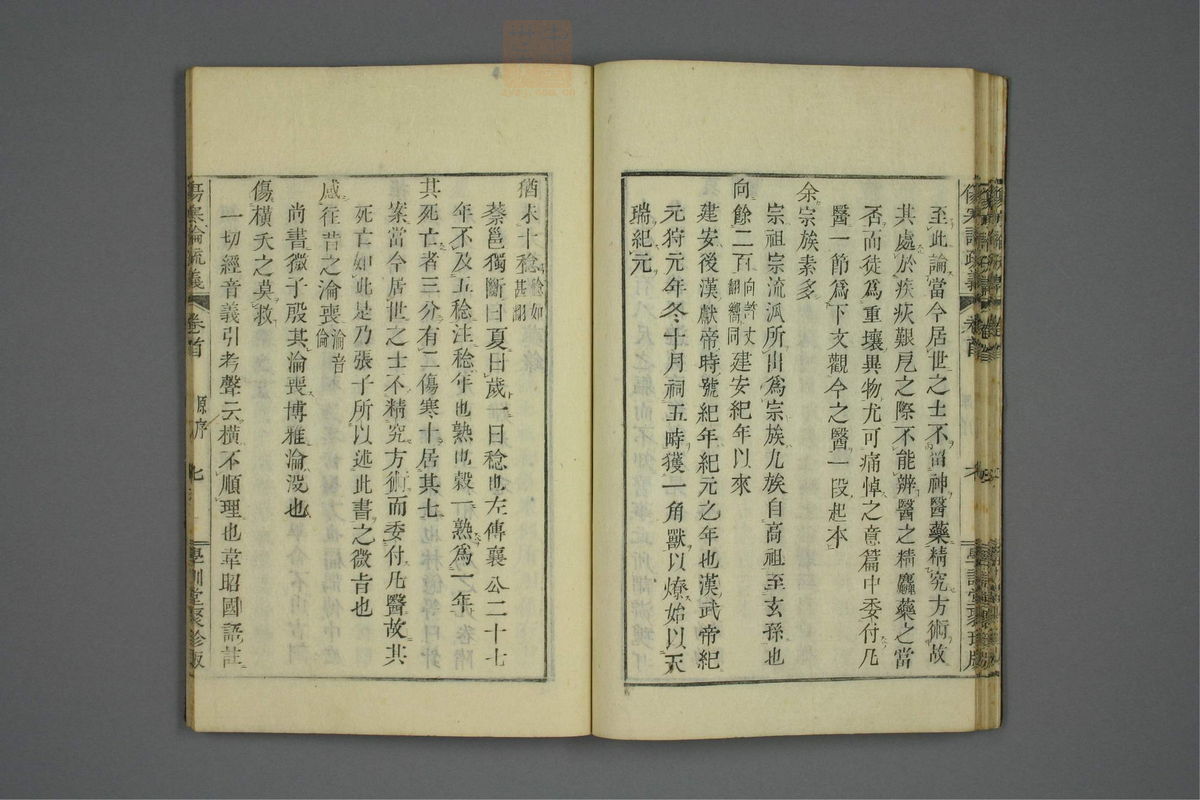 至此論當今居世之士不留神醫藥精究方術故
其處於疾疢艱戹之際不能辨醫之精麤藥之當
否而徒爲重壤異物尤可痛悼之意篇中委付凡
醫一節爲下文觀今之醫一段起本
余宗族素多
宗祖宗流派所出爲宗族九族自高祖至玄孫也
向餘二百向許丈翻嚮同建安紀年以來
建安後漢獻帝時號紀年紀元之年也漢武帝紀
元狩元年冬十月祠五畤獲一角獸以燎始以天
瑞紀元
猶未十稔稔如甚翻
蔡邕獨斷曰夏曰歲一曰稔也左傳襄公二十七
年不及五稔注稔年也熟也穀一熟爲一年
其死亡者三分有二傷寒十居其七
案當今居世之士不精究方術而委付凡醫故其
死亡如此是乃張子所以述此書之微旨也
感往昔之淪喪淪音倫
尚書微子殷其淪喪博雅淪沒也
傷橫夭之莫救
一切經音義引考聲云橫不順理也韋昭國語註
傷寒論疏義
卷首
原序
七
學訓堂聚珍版